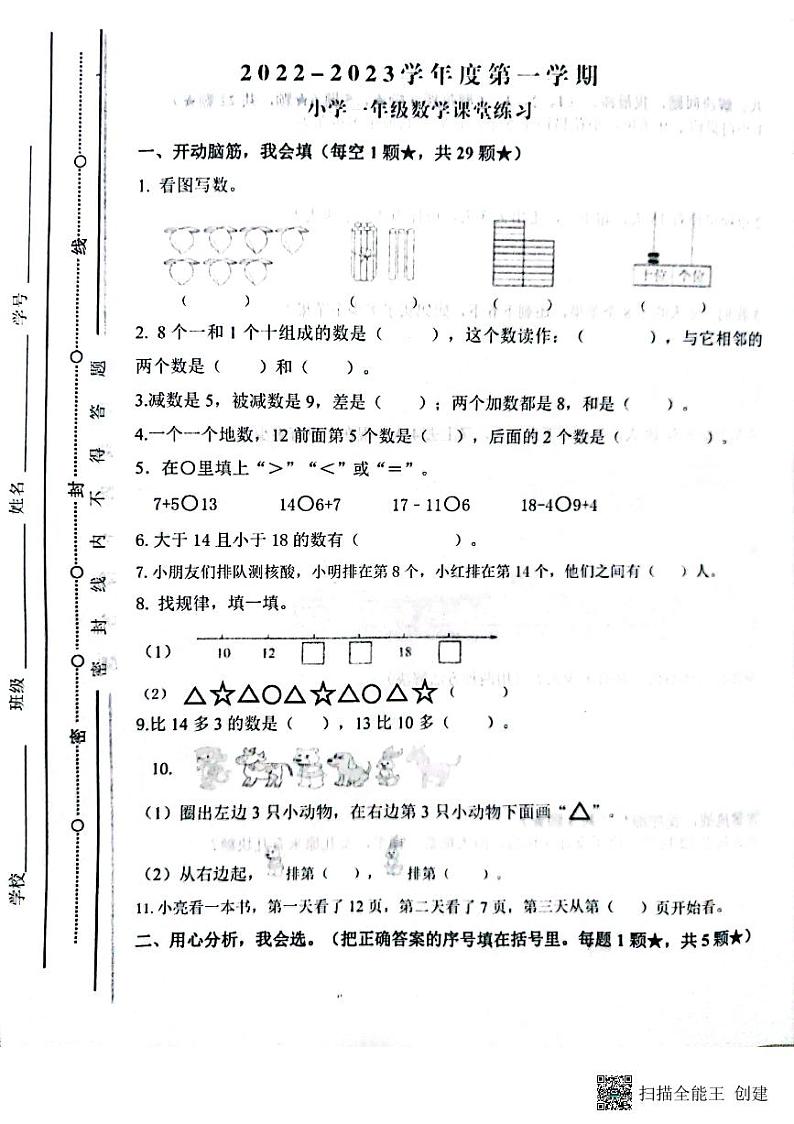 2022-2023学年度第一学期
小学一年级数学课堂练习
一、开动脑筋，我会填（每空1颗★，共29颗★）
1. 看图写数。
十位 个位
（ ） （ ） （ ） （ ）
2. 8个一和1个十组成的数是（ ），这个数读作：（ ），与它相邻的
两个数是（ ）和（ ）。
3.减数是5，被减数是9，差是（ ）；两个加数都是8，和是（ ）。
4.一个一个地数，12前面第5个数是（ ），后面的2个数是（ ）。
5. 在○里填上“>”“<”或“=”。
7+5○13 14○6+7 17-11○6 18-4○9+4
6. 大于14且小于18的数有（ ）。
7. 小朋友们排队测核酸，小明排在第8个，小红排在第14个，他们之间有（ ）人。
8. 找规律，填一填。
（1） 10 12 □ □ 18 □
（2） △☆△○△☆△○△☆（ ）
9.比14多3的数是（ ），13比10多（ ）。
10.
（1）圈出左边3只小动物，在右边第3只小动物下面画“△”。
（2）从右边起， 排第（ ）， 排第（ ）。
11.小亮看一本书，第一天看了12页，第二天看了7页，第三天从第（ ）页开始看。
二、用心分析，我会选。（把正确答案的序号填在括号里。每题1颗★，共5颗★）
学校 班级 姓名 学号
密 封 线
密 封 线 内 不 得 答 题
扫描全能王 创建